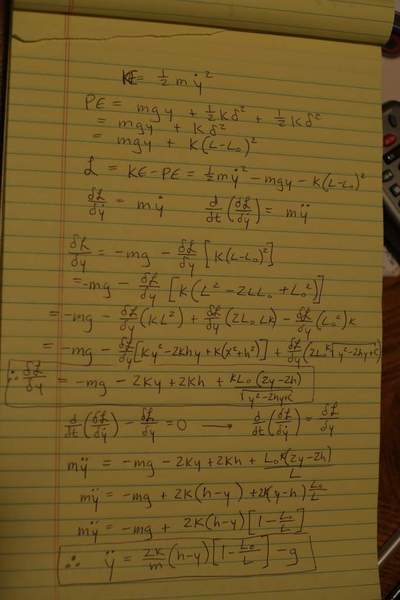 KE = ½ m ẏ²
PE = mgy + ½ K δ² + ½ K δ²
= mgy + K δ²
= mgy + K(L-L₀)²
ℒ = KE - PE = ½ m ẏ² - mgy - K(L-L₀)²
δℒ/δẏ = m ẏ d/dt (δℒ/δẏ) = m ÿ
δℒ/δy = -mg - δℒ/δy [K(L-L₀)²]
= -mg - δℒ/δy [K(L² - 2LL₀ + L₀²)]
= -mg - δℒ/δy (KL²) + δℒ/δy (2LL₀ K) - δℒ/δy (L₀²)K
= -mg - δℒ/δy [Ky² - 2Khy + K(x²+h²)] + δℒ/δy (2L₀K√y²-2hy+C)
∴ δℒ/δy = -mg - 2Ky + 2Kh + KL₀(2y-2h)/√y²-2hy+C
d/dt (δℒ/δẏ) - δℒ/δy = 0 → d/dt (δℒ/δẏ) = δℒ/δy
m ÿ = -mg - 2Ky + 2Kh + L₀K(2y-2h)/L
m ÿ = -mg + 2K(h-y) + 2K(y-h) L₀/L
m ÿ = -mg + 2K(h-y) [1 - L₀/L]
∴ ÿ = 2K/m (h-y) [1 - L₀/L] - g